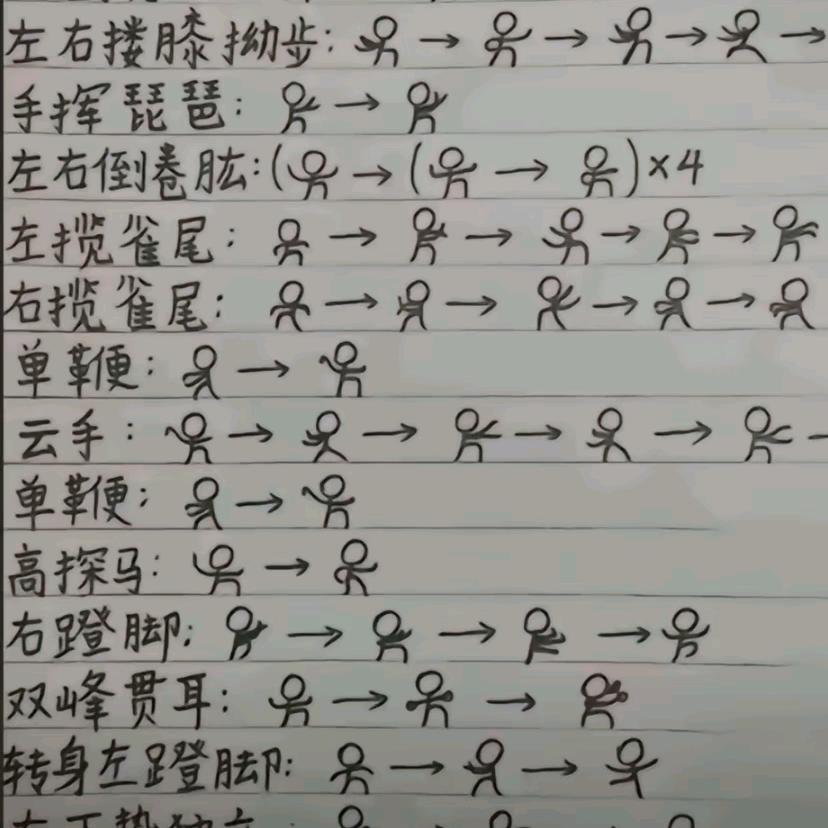 左右搂膝拗步: → → → →
手挥琵琶: →
左右倒卷肱:( → ( → )×4
左揽雀尾: → → → →
右揽雀尾: → → → →
单鞭: →
云手: → → → →
单鞭: →
高探马: →
右蹬脚: → → →
双峰贯耳: → →
转身左蹬脚: → →